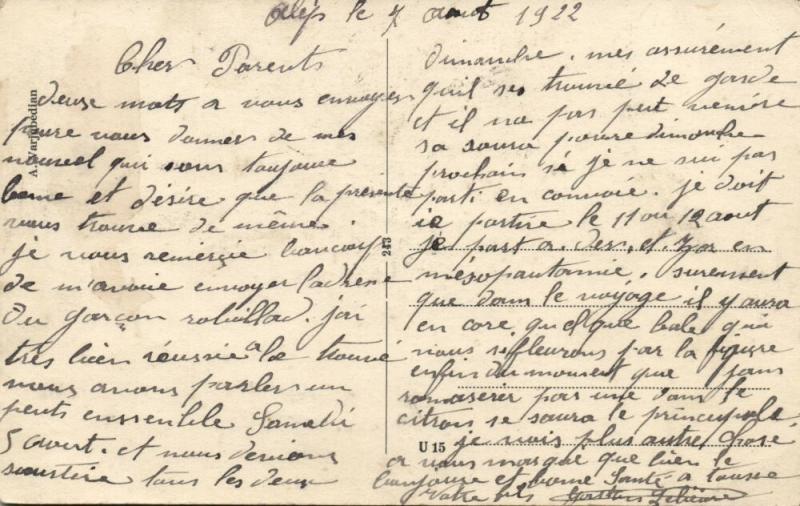 Alep le 7 aout 1922
Cher Parents
deuse mots a vous envoyer
poure vous donner de mes
nouvel qui sont toujoure
bonne et désire que la présente
vous trouve de même.
je vous remercie baucoup
de m'avoire envoyer ladresse
du garçon robillad. jai
très bien réussie a le trouvé
nous avons parler un
peut enssemble Samedi
5 avout. et nous devions
sourtire tous les deux
dimanche. mes assurément
quil se trouvé de garde
et il na pas put venire
sa soura poure dimanche
prochain sé je ne sui pas
parti en convoié. je doit
ie partire le 11 ou 12 aout
je part a. der. et. zor en
mésopautamie. surement
que dans le voyage il y aura
en core quelque bale qui
nous sefleurons par la figure
enfin du moment que jan
romaserer pas une dans le
citron se soura le principale
je vois plus autre chose
a vous marqué que bien le
boujoure et bonne Santé a tousse
votre fils
A. Wartabedian
243
U 15